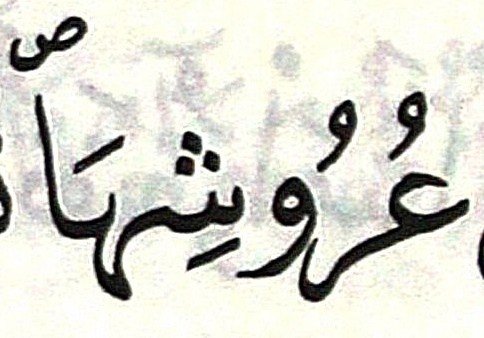 عُرُوشِهَا ص